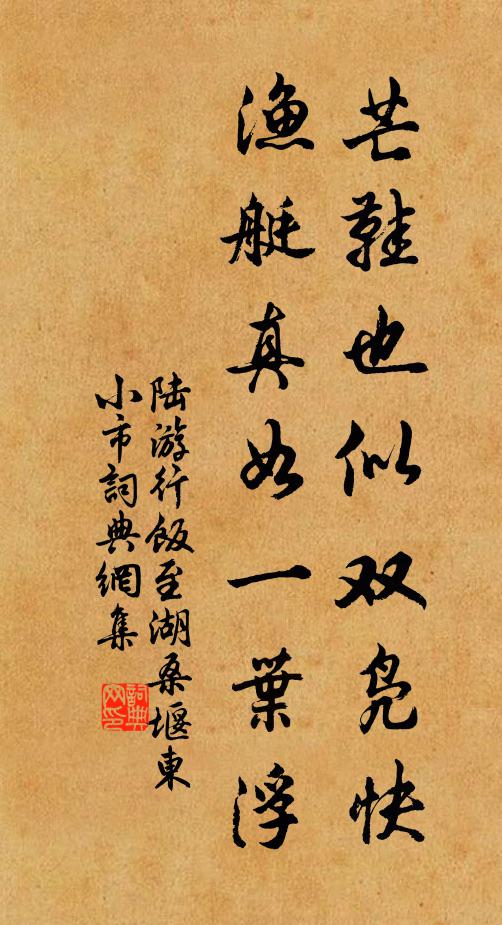 芒鞋也似双凫快
渔艇真如一葉浮
陆游行飯至湖桑堰東
小市詞典網集
詞典
网印